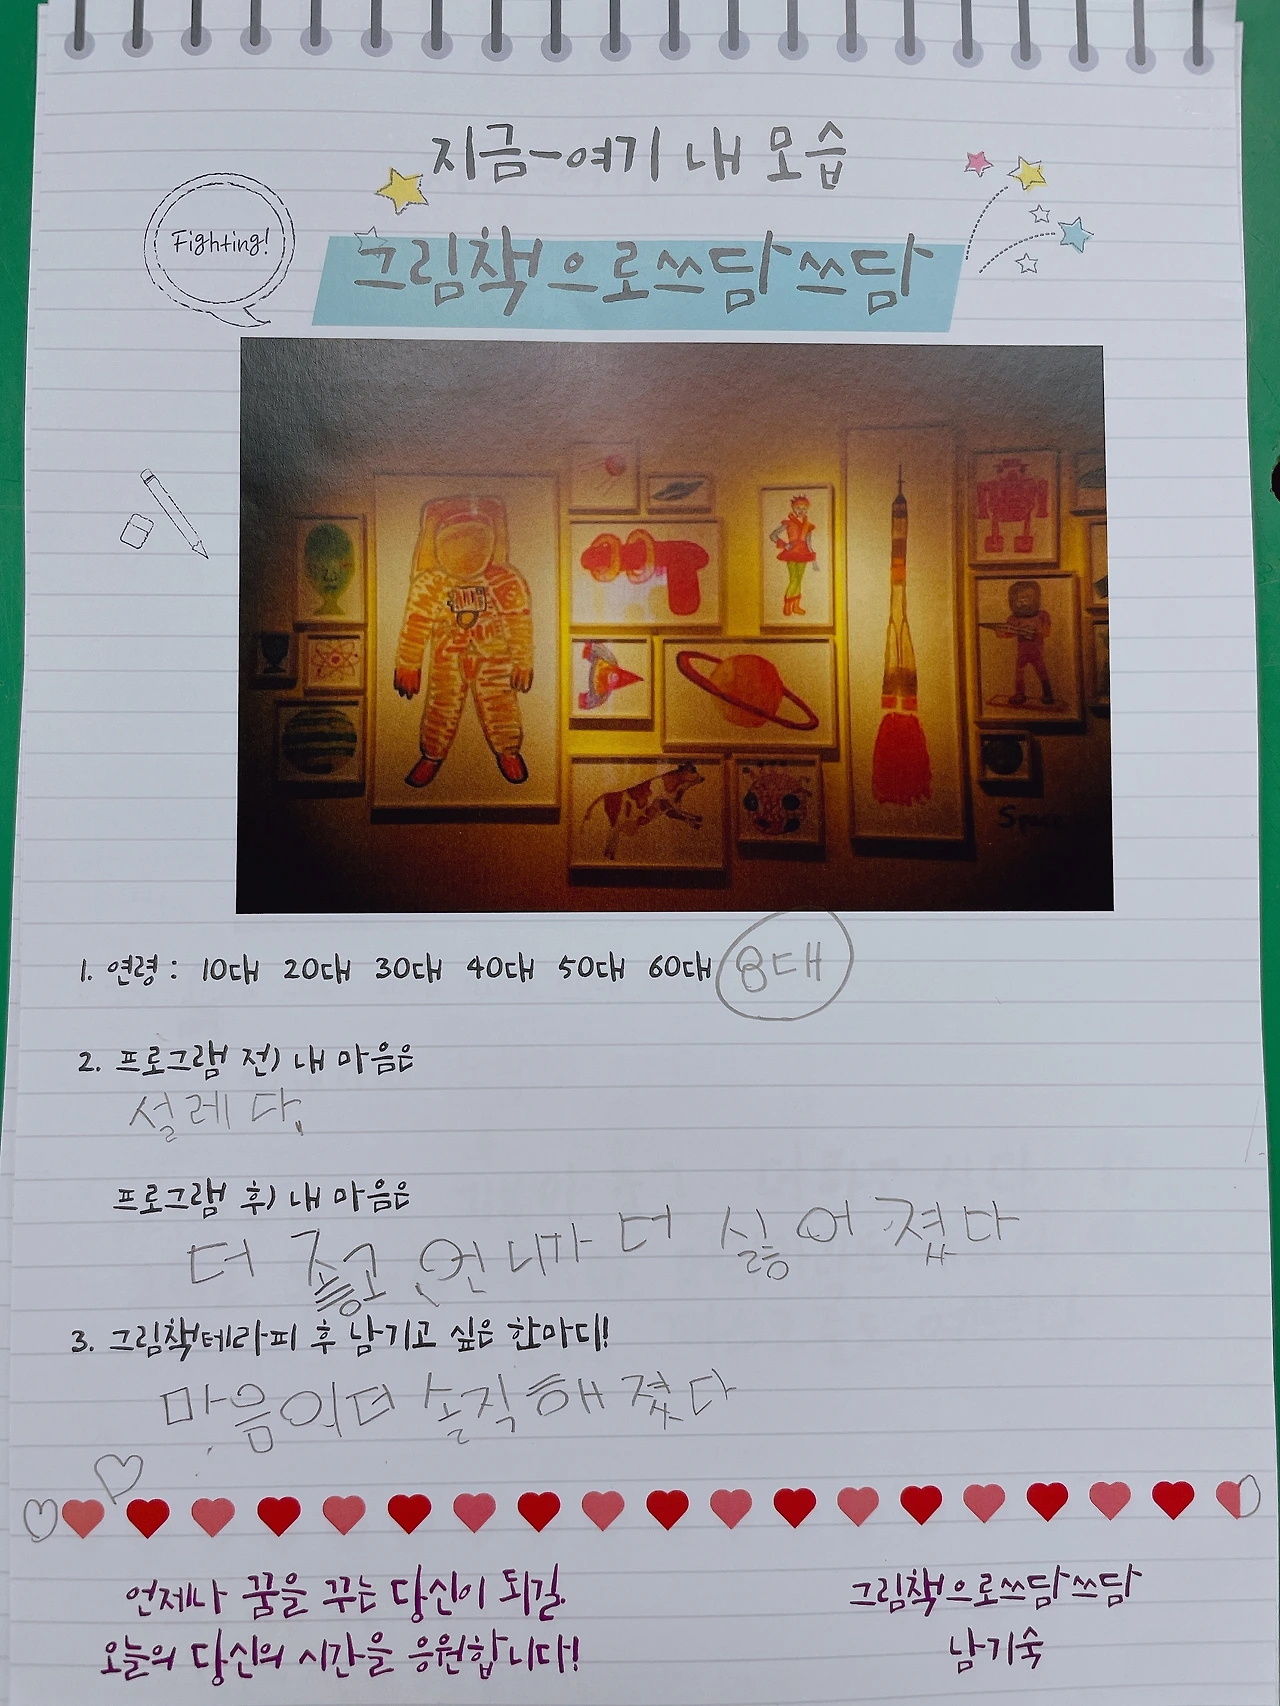 지금-여기 내 모습
Fighting!
그림책으로쓰담쓰담
Space
1. 연령 : 10대 20대 30대 40대 50대 60대 8대
2. 프로그램 전) 내 마음은
설레다.
프로그램 후) 내 마음은
더 좋고 언니가 더 싫어졌다
3. 그림책테라피 후 남기고 싶은 한마디!
마음이더 솔직해졌다
언제나 꿈을 꾸는 당신이 되길.
오늘의 당신의 시간을 응원합니다!
그림책으로쓰담쓰담
남기숙